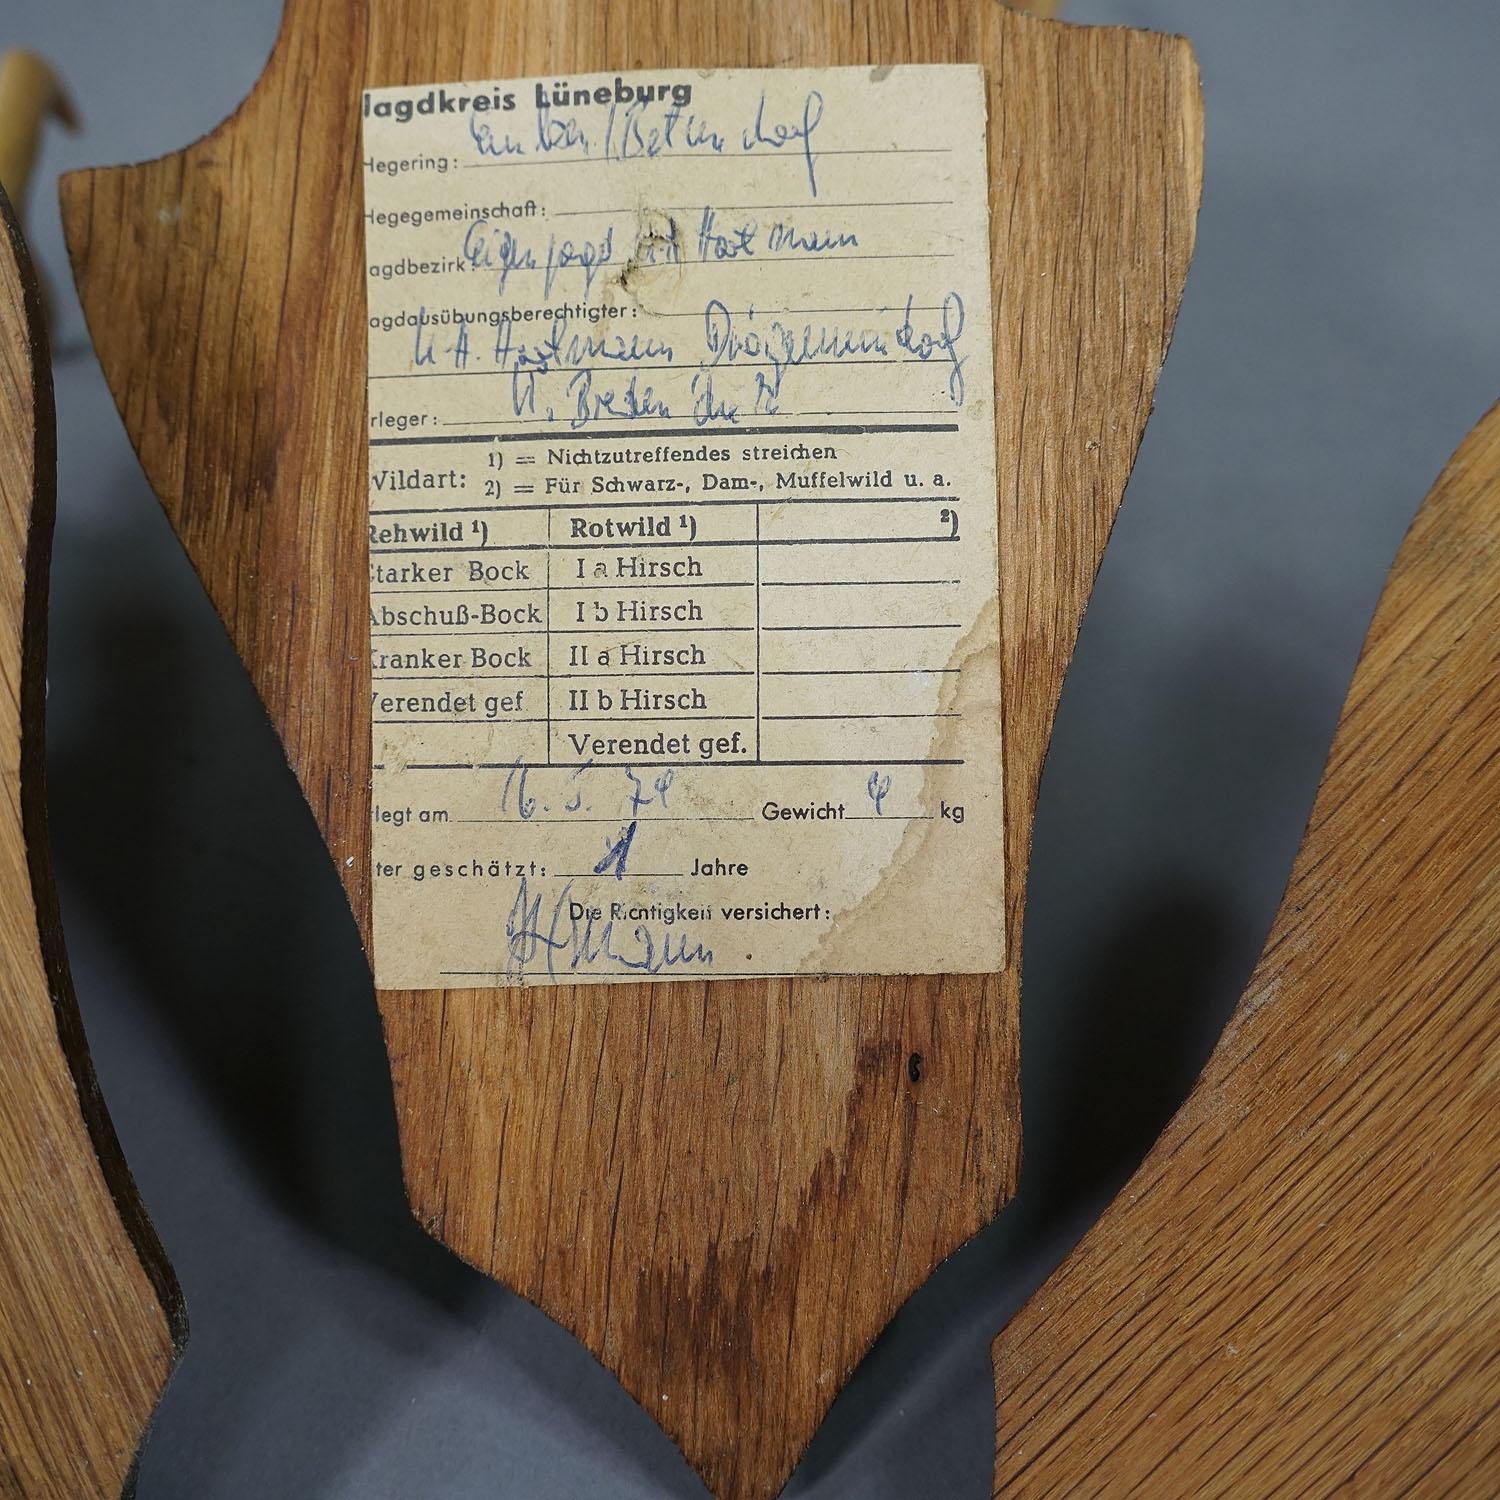 Jagdkreis Lüneburg
Hegering:
Hegegemeinschaft:
agdbezirk: Eigenjagd Hartmann
agdausübungsberechtigter:
Hartmann
rleger:
Wildart: 1) = Nichtzutreffendes streichen
2) = Für Schwarz-, Dam-, Muffelwild u. a.
Rehwild ¹) Rotwild ¹) ²)
Starker Bock I a Hirsch
Abschuß-Bock I b Hirsch
Kranker Bock II a Hirsch
Verendet gef. II b Hirsch
Verendet gef.
legt am 16. 5. 74 Gewicht kg
ter geschätzt: 1 Jahre
Die Richtigkeit versichert:
Hartmann